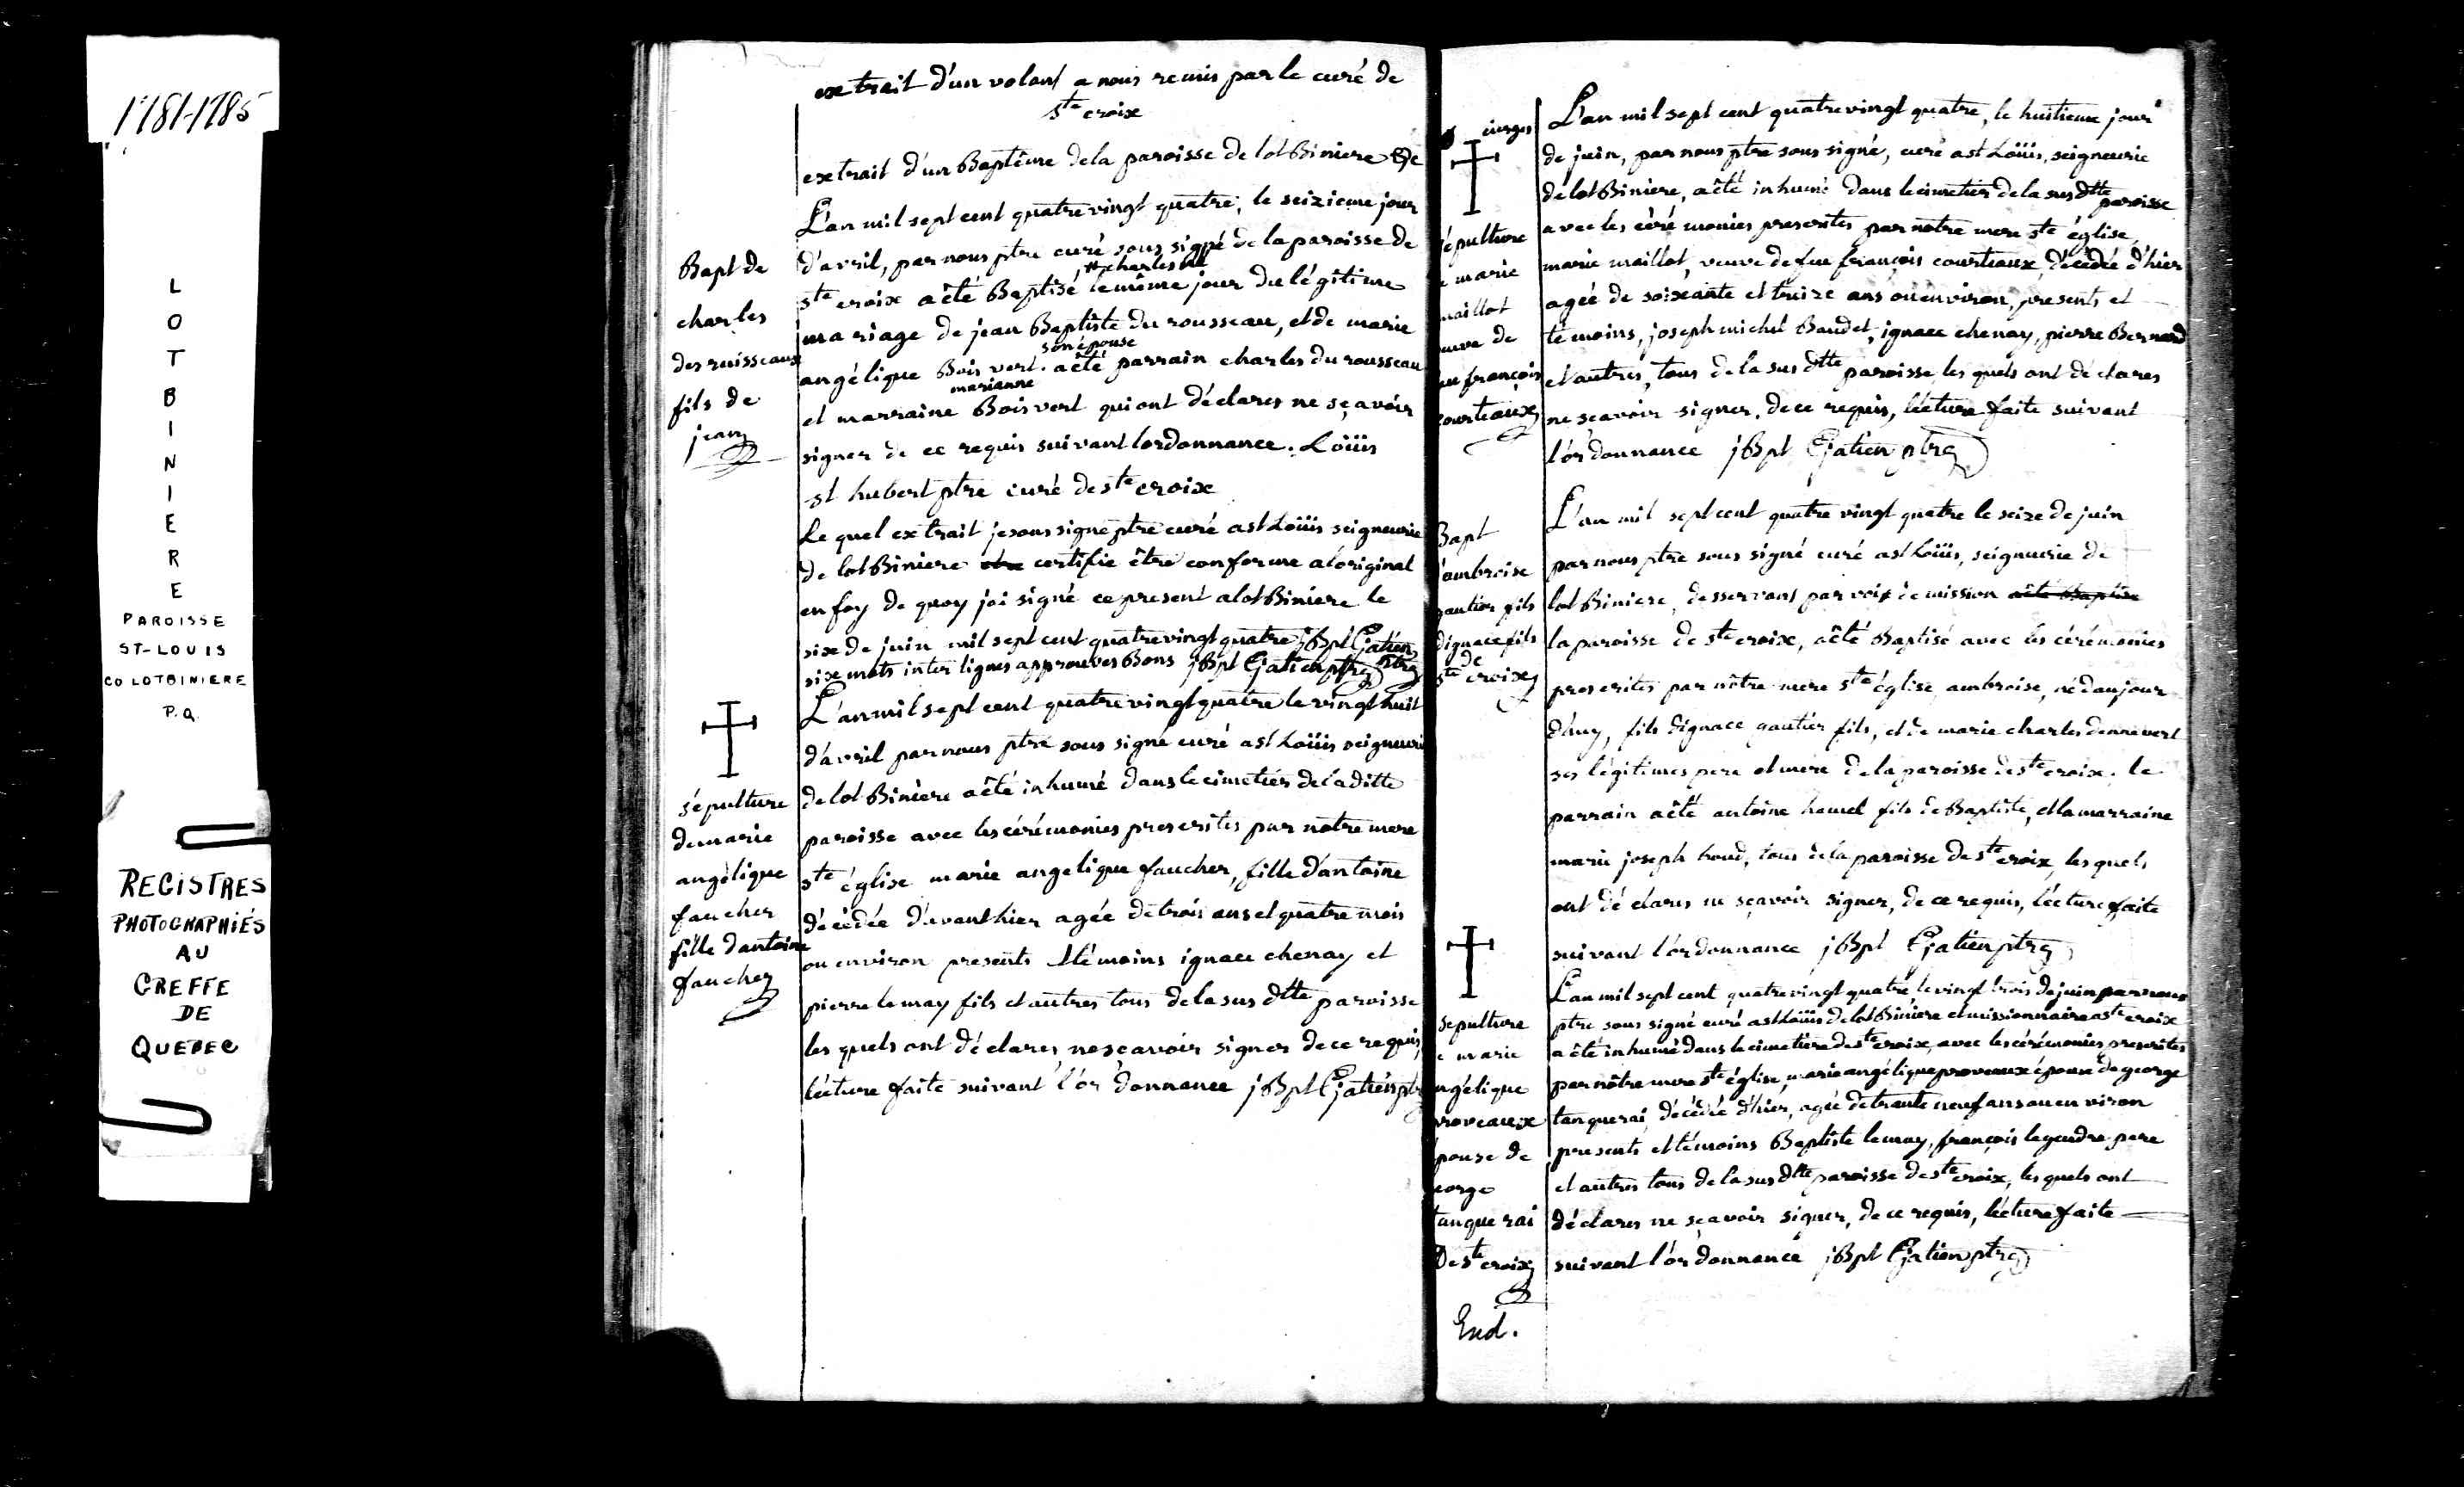 1781-1785
L
O
T
B
I
N
I
E
R
E
PAROISSE
ST-LOUIS
CO LOTBINIERE
P.Q.
REGISTRES
PHOTOGRAPHIÉS
AU
GREFFE
DE
QUEBEC
extrait d'un volant a nous remis par le curé de
ste croix
extrait d'un Baptême de la paroisse de lotBiniere
Bapt de
charles
desruisseaux
fils de
jean
L'an mil sept cent quatre vingt quatre, le seizieme jour
d'avril, par nous ptre curé sous signé de la paroisse de
# charles
ste croix a èté Baptisé le même jour du légitime
mariage de jean Baptiste du rousseau, et de marie
son épouse
angélique Bois vert. a èté parrain charles du rousseau
marianne
et marraine Boisvert qui ont déclarés ne sçavoir
signer de ce requis suivant lordonnance. Loüis
st hubert ptre curé de ste croix
Le quel extrait je sous signé ptre curé a st Loüis seigneurie
de lotBiniere certifie être conforme a loriginal
en foy de quoy jai signé ce present a lotBiniere le
six de juin mil sept cent quatre vingt quatre jBpt Gatien
ptre
six mots inter lignes approuvés Bons jBpt Gatien ptre
sépulture
de marie
angélique
faucher
fille dantoine
faucher
L'an mil sept cent quatre vingt quatre le vingt huit
d'avril par nous ptre sous signé curé a st Loüis seigneurie
de lotBiniere a èté inhumé dans le cimetiér de la ditte
paroisse avec les cérémonies prescrites par notre mere
ste église marie angelique faucher, fille d'antoine
décédée d'avant hier agée de trois ans et quatre mois
ou environ presents et témoins ignace chenay et
pierre lemay fils et autres tous de la sus dtte paroisse
les quels ont déclarés ne sçavoir signer de ce requis,
lécture faite suivant l'ordonnance jBpt Gatien ptre
cierges
sépulture
marie
maillot
de
françois
courteaux
L'an mil sept cent quatre vingt quatre, le huitieme jour
de juin, par nous ptre sous signé, curé a st Loüis, seigneurie
de lotBiniere, a èté inhumé dans le cimetiér de la sus dtte paroisse
avec les cérémonies prescrites par nôtre mere ste église,
marie maillot, veuve de feu françois courteaux, décédée d'hier
agée de soixante et treize ans ou environ, presents et
témoins, joseph michel Baudet, ignace chenay, pierre Bernard
et autres, tous de la sus dtte paroisse, les quels ont déclarés
ne sçavoir signer, de ce requis, lécture faite suivant
l'ordonnance jBpt Gatien ptre
Bapt
d'ambroise
gautier fils
dignace fils
de
ste croix
L'an mil sept cent quatre vingt quatre le seize de juin
par nous ptre sous signé curé a st Loüis, seigneurie de
lotBiniere, desservant par voix de mission a èté Baptisé
la paroisse de ste croix, a èté Baptisé avec les cérémonies
prescrites par nôtre mere ste église ambroise, né daujour
d'huy, fils dignace gautiér fils, et de marie charles
ses légitimes pere et mere de la paroisse de ste croix. le
parrain a èté antoine hamel fils de Baptiste, et la marraine
marie joseph houd, tous de la paroisse de ste croix, les quels
ont déclarés ne sçavoir signer, de ce requis, lécture faite
suivant l'ordonnance jBpt Gatien ptre
sepulture
marie
angélique
proveaux
épouse de
george
tanquerai
De ste croix
L'an mil sept cent quatre vingt quatre, le vingt trois de juin par nous
ptre sous signé curé a st Loüis de lotBiniere et missionnaire a ste croix
a èté inhumé dans le cimetiere de ste croix, avec les cérémonies prescrites
par nôtre mere ste église, marie angélique proveaux épouse de george
tanquerai, décédée d'hiér, agée de trente neuf ans ou environ
presents et témoins Baptiste lemay, françois legendre pere
et autres tous de la sus dtte paroisse de ste croix, les quels ont
déclarés ne sçavoir signer, de ce requis, lécture faite
suivant l'ordonnance jBpt Gatien ptre
End.